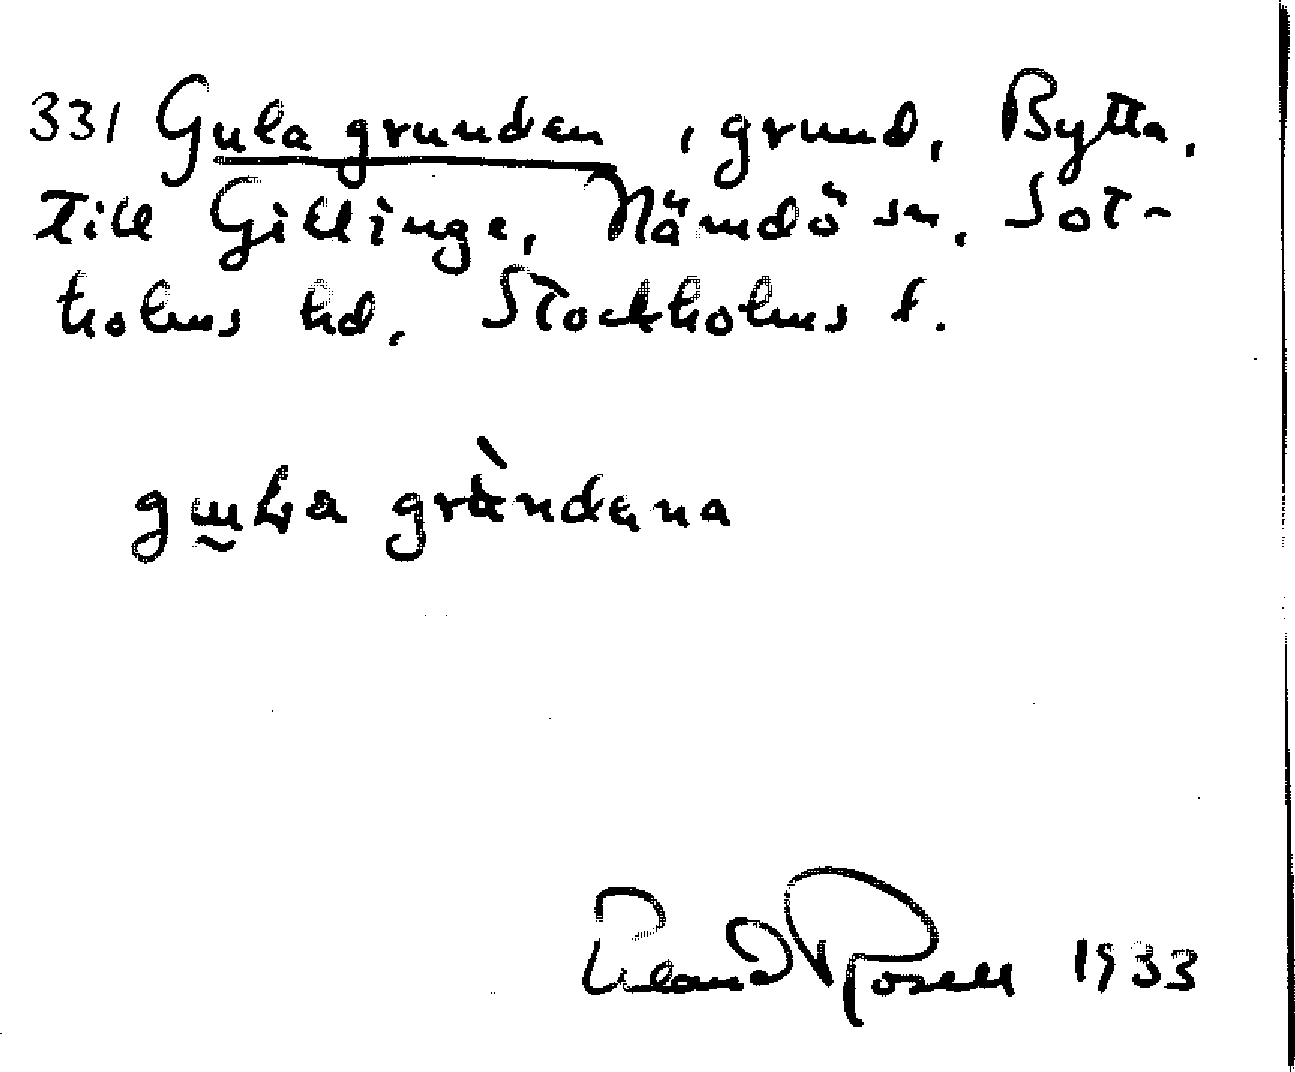 331 Gula grunden, grund, Bytta,
till Gillinge, Nämdö sn, Sot-
holms hd, Stockholms l.
grùndana
Rosell 1933